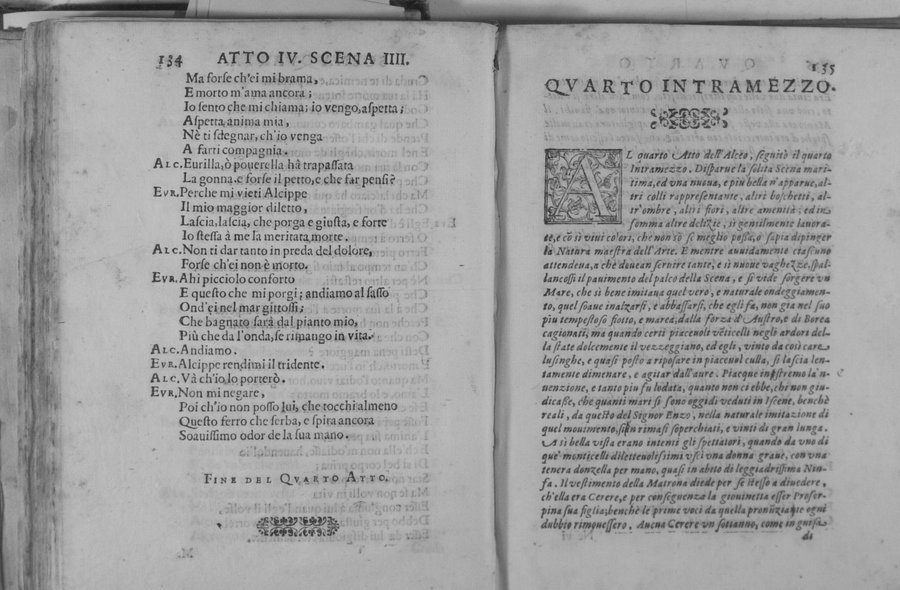 134 ATTO IV. SCENA IIII.
Ma forse ch'ei mi brama,
E morto m'ama ancora;
Io sento che mi chiama; io vengo, aspetta;
Aspetta, anima mia,
Nè ti sdegnar, ch'io venga
A farti compagnia.
ALC. Eurilla, ò pouerella hà trapassata
La gonna e forse il petto, e che far pensi?
EVR. Perche mi vieti Alcippe
Il mio maggior diletto,
Lascia, lascia, che porga e giusta, e forte
Io stessa à me la meritata morte.
ALC. Non ti dar tanto in preda del dolore,
Forse ch'ei non è morto.
EVR. Ahi picciolo conforto
E questo che mi porgi; andiamo al sasso
Ond'ei nel mar gittossi;
Che bagnato sarà dal pianto mio,
Più che da l'onda, se rimango in vita.
ALC. Andiamo.
EVR. Alcippe rendimi il tridente.
ALC. Và ch'io, lo porterò.
EVR. Non mi negare,
Poi ch'io non posso lui, che tocchi almeno
Questo ferro che serba, e spira ancora
Soauissimo odor de la sua mano.
FINE DEL QVARTO ATTO.
135
QVARTO INTRAMEZZO.
AL quarto Atto dell'Alceo, seguitò il quarto
Intramezo. Disparue la solita Scena mari-
tima, ed vna nuoua, e più bella n'apparue, al-
tri colli rappresentante, altri boschetti, al-
tr'ombre, altri fiori, altre amenità; ed in
somma altre delizie, sì gentilmente lauora-
te, e cō sì viui colori, che non sò se meglio possa, ò sapia dipinger
la Natura maestra dell'Arte. E mentre auuidamente ciascuno
attendeua, a chè doueàn seruire tante, e sì nuoue vaghezze, spal-
lancossi il pauimento del palco della Scena, e si vide sorgere vn
Mare, che sì bene imitaua quel vero, e naturale ondeggiamen-
to, quel soaue inalzarsi, e abbassarsi, che egli fà, non già nel suo
più tempestoso fiotto, e marea, dalla forza d'Austro, e di Borea
cagionati, ma quando certi piaceuoli vēticelli negli ardori del-
la state dolcemente il vezzeggiano, ed egli, vinto da così care
lusinghe, e quasi posto a riposare in piaceuol culla, si lascia len-
tamente dimenare, e agitar dall'aure. Piacque in estremo la 'n-
uenzione, e tanto più fu lodata, quanto non ci ebbe, chi non giu-
dicasse, che quanti mari si sono oggidì veduti in Iscene, benchè
reali, da questo del Signor Enzo, nella naturale imitazione di
quel mouimento, sien rimasi soperchiati, e vinti di gran lunga.
A sì bella vista erano intenti gli spettatori, quando da vno di
que' monticelli dilettenolissimi vscì vna donna graue, con vna
tenera donzella per mano, quasi in abito di leggiadrissima Nin-
fa. Il vestimento della Matrona diede per sè stesso a diuedere,
ch'ella era Cerere, e per conseguenza la giouinetta esser Proser-
pina sua figlia; benchè le prime voci da quella pronūziate ogni
dubbio rimouessero. Auena Cerere vn sottanno, come in guisa
di